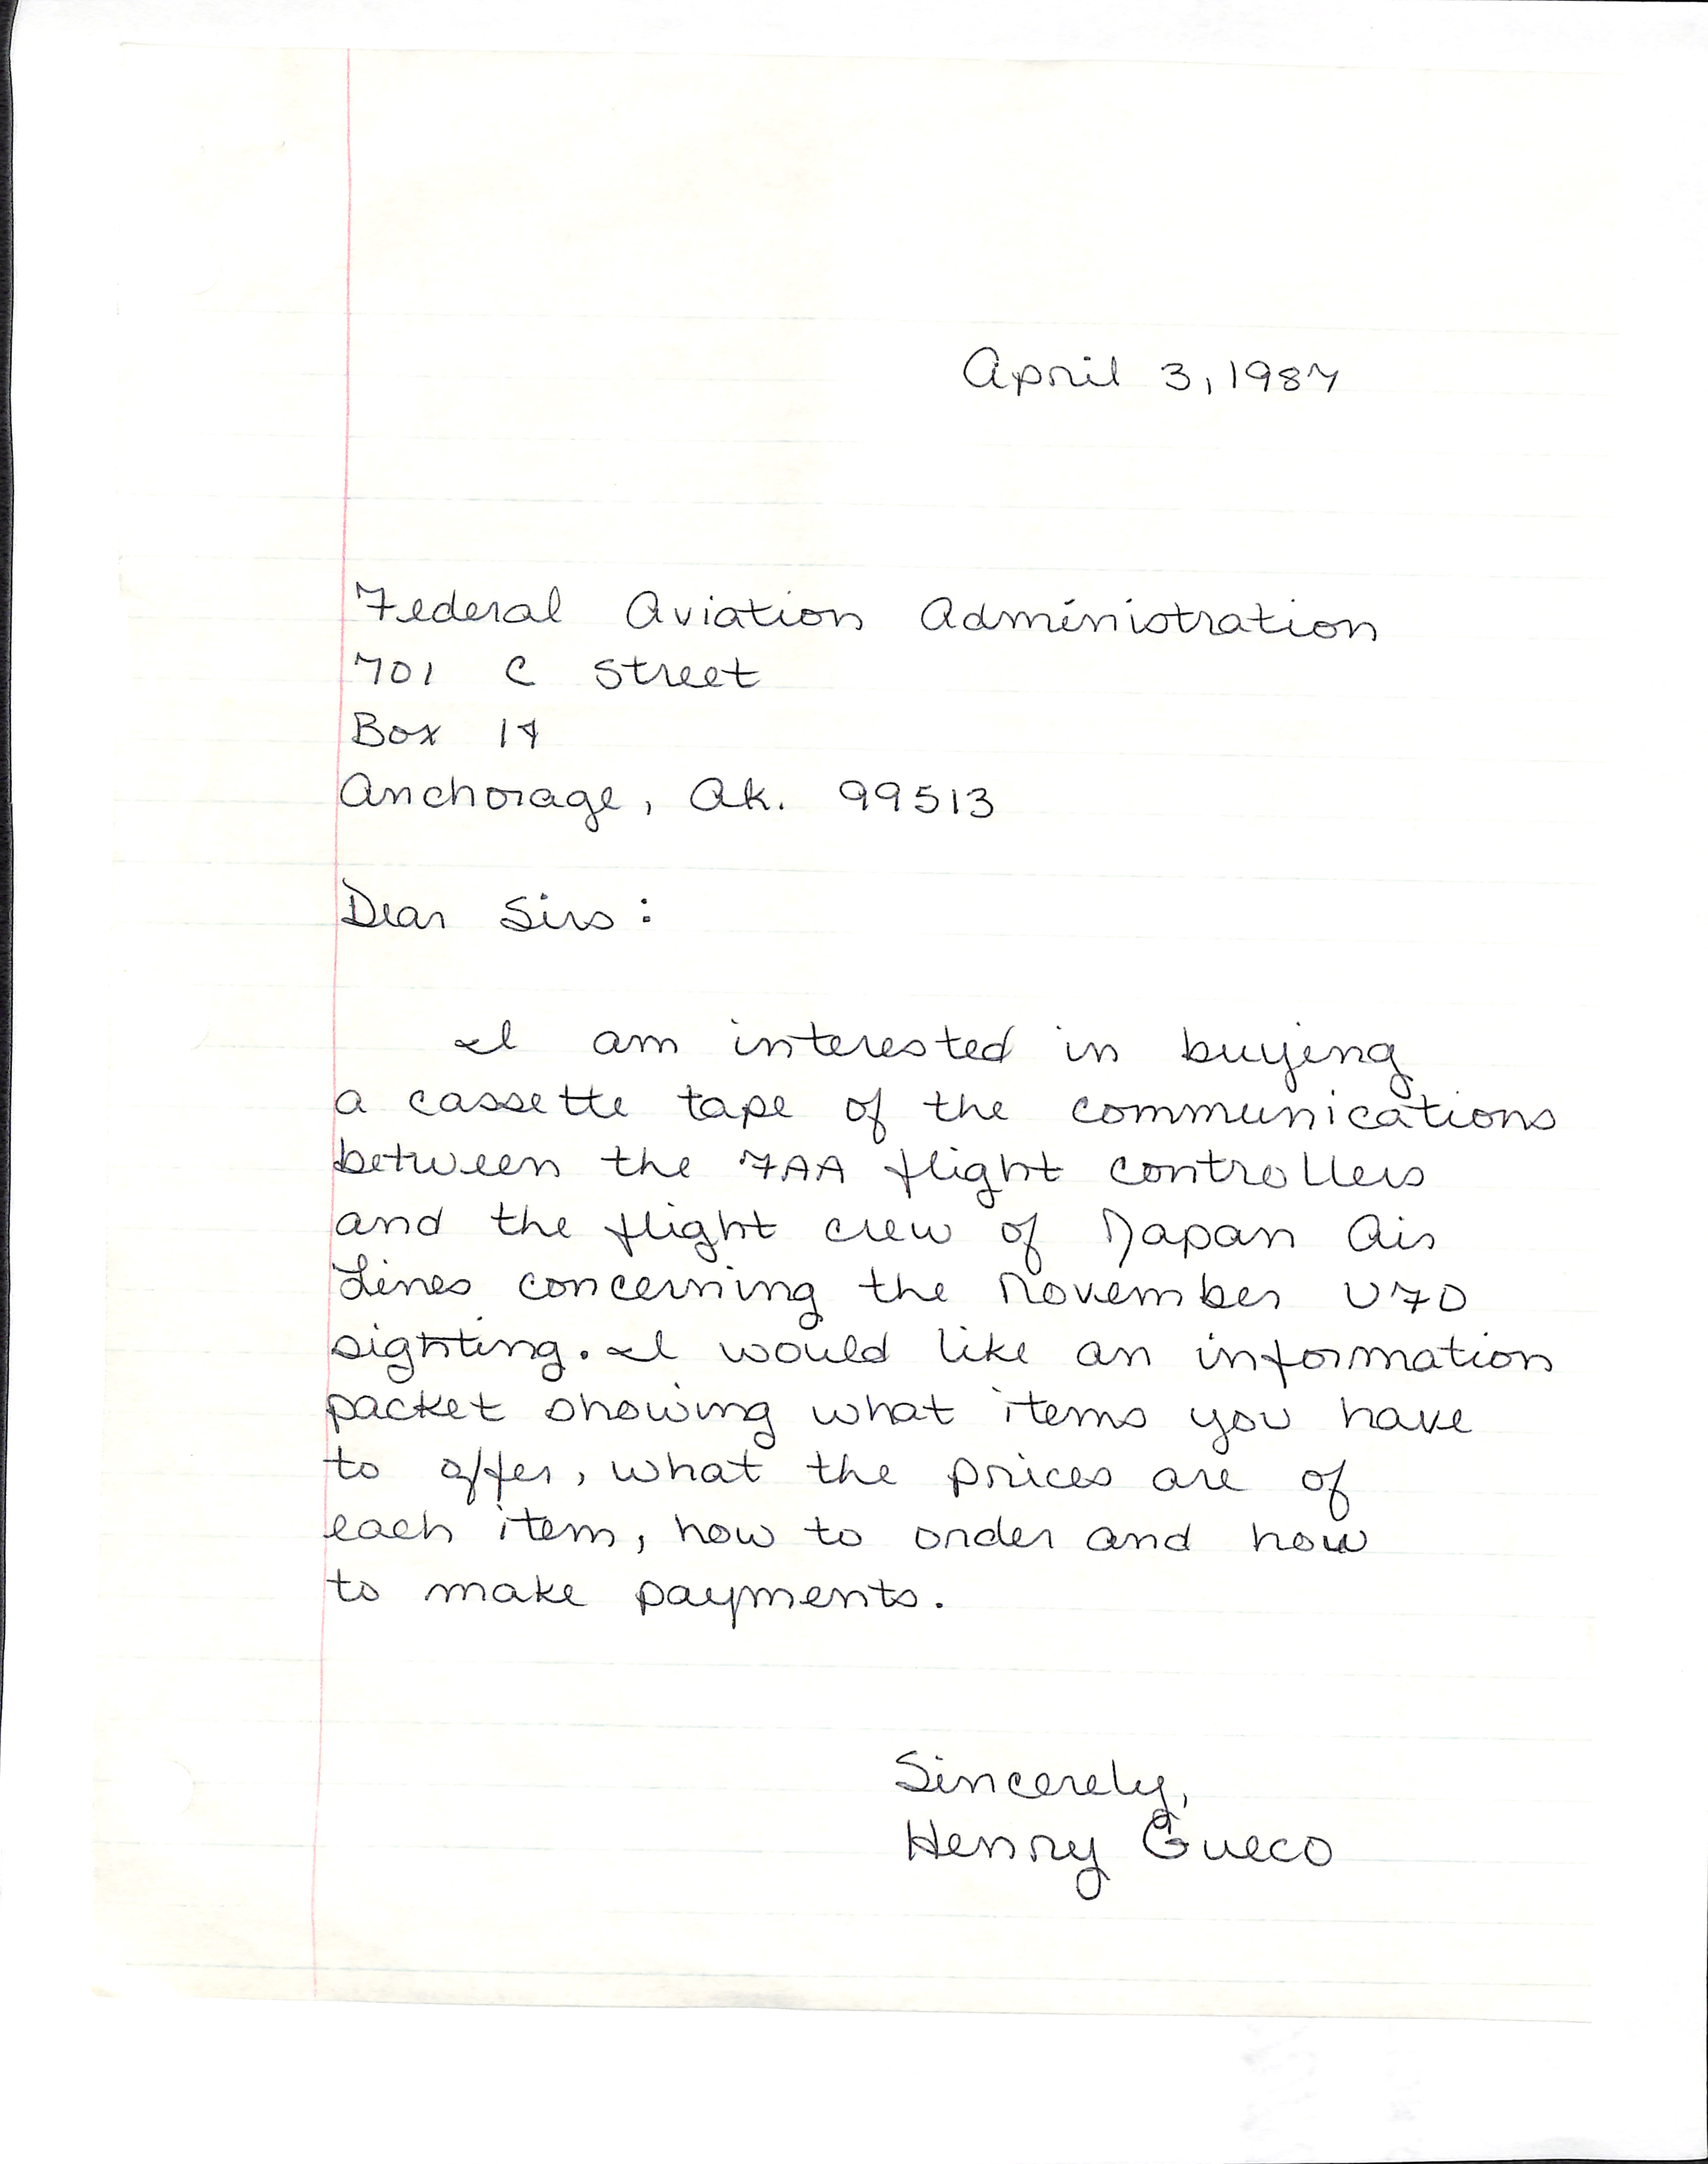 April 3, 1987
Federal Aviation Administration
701 C Street
Box 14
Anchorage, Ak. 99513
Dear Sirs:
I am interested in buying
a cassette tape of the communications
between the FAA flight controllers
and the flight crew of Japan Air
Lines concerning the November UFO
sighting. I would like an information
packet showing what items you have
to offer, what the prices are of
each item, how to order and how
to make payments.
Sincerely,
Henry Gueco